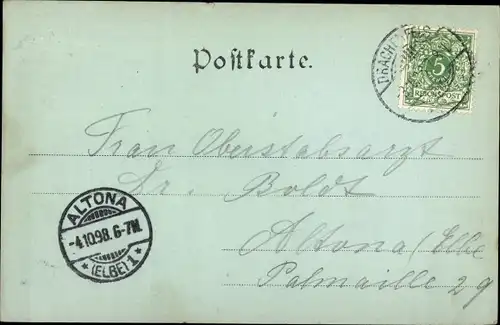 Postkarte.
5
REICHSPOST
Frau Oberstabsarzt
Dr. Boldt
Altona/Elbe
Palmaille 29
ALTONA
-4.10.98. 6-7N.
* (ELBE) 1 *